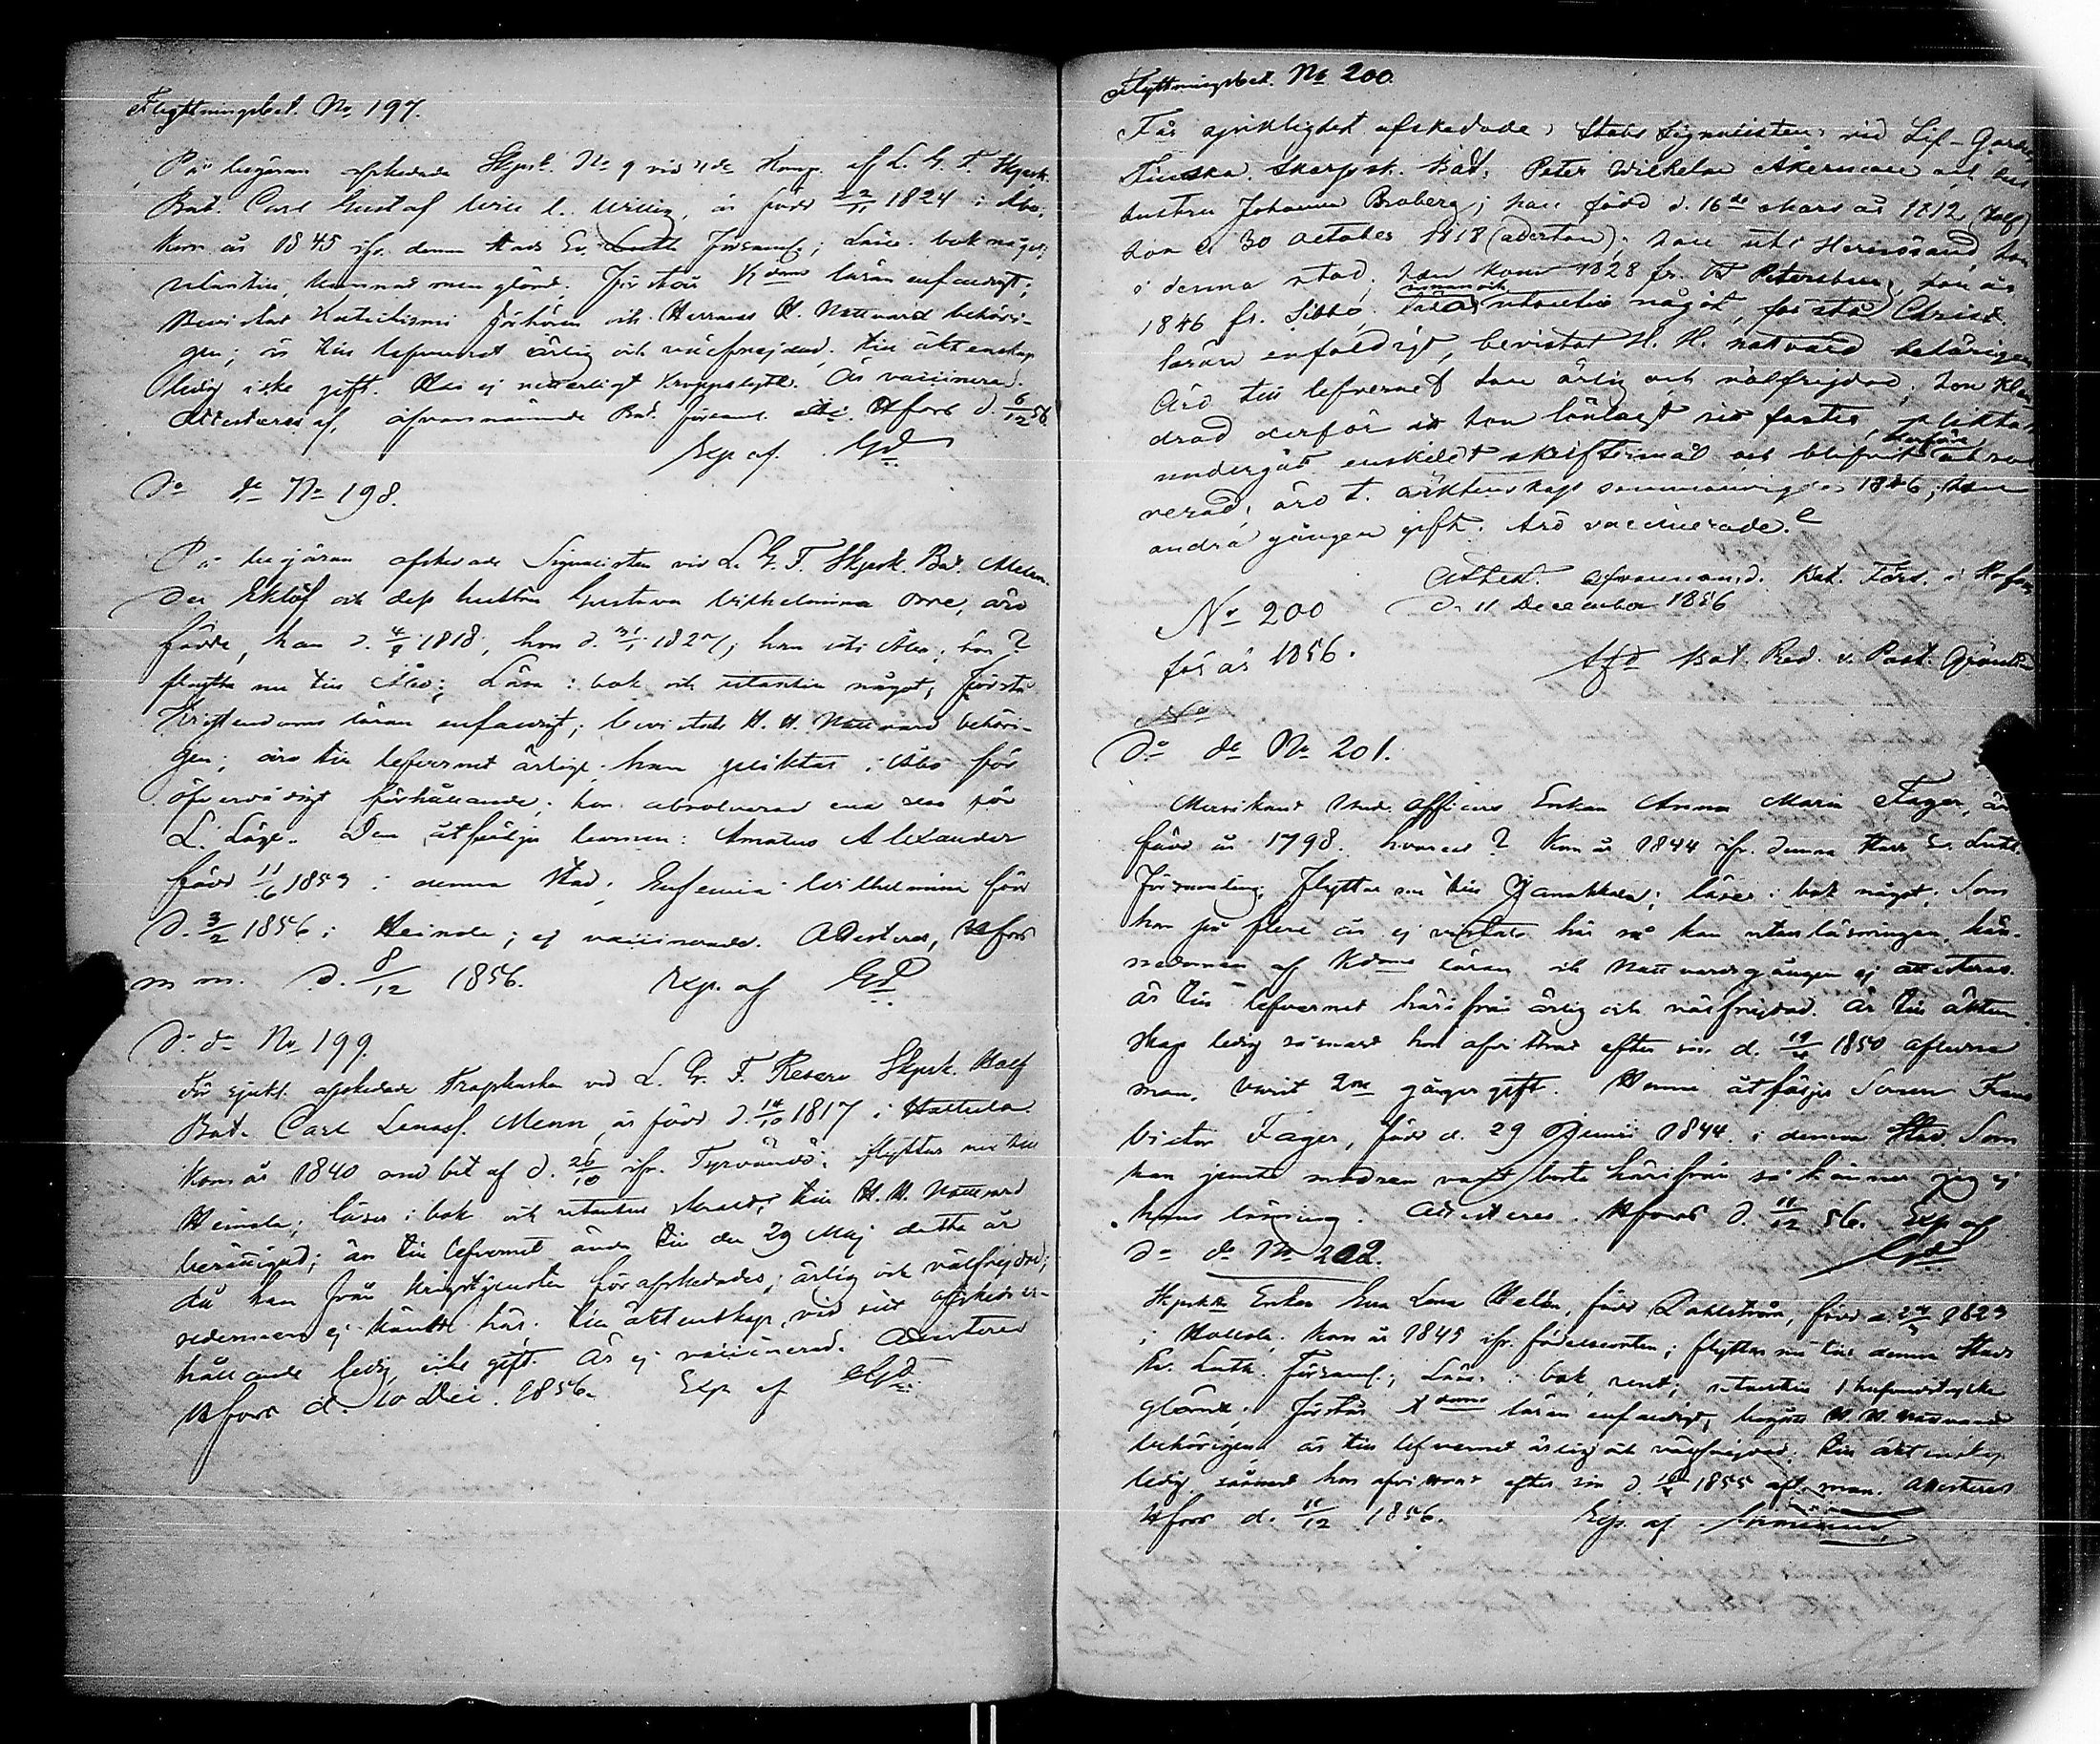 Flyttningsbet. No 197.
På begäran afskedade Skpsk. No 9 vid 4de Komp. af L. G. F. Skpsk.
Bat. Carl Gustaf Wilig, är född 2/11 1824 i Åbo,
kom år 1845 ifr. denna stads Ev. Luth. Församl.; Läser i bok något,
utantin, hemmad men glömd. Förstår Kdoms läran enfaldigt;
Bevistat Katechismi förhören och Herrans H. Nattvard behöri-
gen; är till lefvernet ärlig och välfrejdad, till äktenskap
ledig icke gift. Har ej naturligt kroppslyte. Är vaccinerad.
Attesteras af ofvannämnde Bat. församl. Hfors d. 6/12 56.
Exp. af. GD
Do do No 198.
På begäran afskedade Signalisten vid L. G. F. Skpsk. Bat. Alexan-
der Eklöf och dess hustru Gustava Wilhelmina Orre, äro
födde, han d. 4/9 1818, hon d. 31/ 1827; han uti Åbo, hon ?
flytta nu till Åbo; Läsa i bok och utantin något; förstå
Kristendoms läran enfaldigt; bevistat H. H. Nattvard behöri-
gen; äro till lefvernet ärlige, han pliktat i Åbo för
förhållande; hon absolverad
L. Läge. Dem åtföljer barnen: Amatus Alexander
född 11/6 1853 i denna stad, Eufemia Wilhelmina född
d. 3/2 1856 i Heinola; ej vaccinerade. Attesteras, Hfors
m m. d. 8/12 1856. Exp. af GD
Do do No 199.
För sjukl. afskedade Trapskusken vid L. G. F. Reserv Skpsk. Half
Bat. Carl Menn, är född d. 14/10 1817 i Hattula.
Kom år 1840 med bet af d. 26/10 ifr. Tyrvändö; flyttar nu till
Heinola; läser i bok och utantin, till H. H. Nattvard
berättigad; är till lefvernet ända till den 29 Maj detta år
då han från krigstjensten för afskedades, ärlig och välfrejdad;
sedermera ej kändt här. till äktenskap, vid sitt afsked er-
hållande ledig, icke gift. Är ej vaccinerad. Attesteras
Hfors d. 10 Dec. 1856. Exp. af GD
Flyttningsbet. No 200.
För sjuklighet afskedade Stabs Signalisten vid Lif-Gardets
Finska Skarpsk. Bat. Peter Wilhelm Åkerman och dess
hustru Johanna Broberg; han född d. 16de Mars år 1812 (tolf)
hon d. 30 October 1818 (aderton); han uti Hernösand, hon
i denna stad, han kom 1828 fr. St Petersburg, hon år
1846 fr. Sibbo, innan och utantin något, förstå Christ.
läran enfaldigt, bevistat H. H. nattvard behörigen
Äro till lefvernet han ärlig och välfrejdad, hon klan-
drad derför att hon lönlagt sitt foster, pliktat
undergått enskildt skriftermål och blifvit derföre absol-
verad; äro t. äktenskap sammanvigda 1846, han
andra gången gift. Äro vaccinerade.
Attest. ofvannämnd. Bat. Förs. i Hfors
d. 11 December 1856
No 200
för år 1856.
Bat. Pred. v. Past. Grönlund
No
Do do No 201.
Musikant Under officers Enkan Anna Maria Fager, är
född år 1798. hvarest ? Kom år 1844 ifr. denna stads Ev. Luth.
Församling; flyttar nu till Janakkala; läser i bok något. Som
hon på flere år ej vistats här så kan utanläsningen, kän-
nedomen af Kdoms läran och Nattvardsgången ej attesteras.
är till lefvernet härifrån ärlig och välfrejdad. Är till äkten-
skap ledig såsnart hon afvittrat efter sin d. 19/ 1850 aflidna
man. Varit 2ne gånger gift. Henne åtföljer Sonen Frans
Victor Fager, född d. 29 Junii 1844 i denna stad. Som
han jemte modren varit borta härifrån så känner jag ej
hans läsning. Attesteras. Hfors d. 11/12 56. Exp. af
GD
Do do No 202.
Skpskts Enkan Eva Lena Helén, född Dahlström, född d. 24/5 1823
i Hollola. Kom år 1845 ifr. födelseorten; flyttar nu till denna Stads
Ev. Luth. Församl.; Läser i bok rent, utantin
glömt; förstår Xdoms läran enfaldigt, begått H. H. Nattvard
behörigen är till lefvernet ärlig och välfrejdad. Till äktenskap
ledig såsnart hon afvittrat efter sin d. 1855 afl. man. Attesteras
Hfors d. 11/12 1856. Exp. af